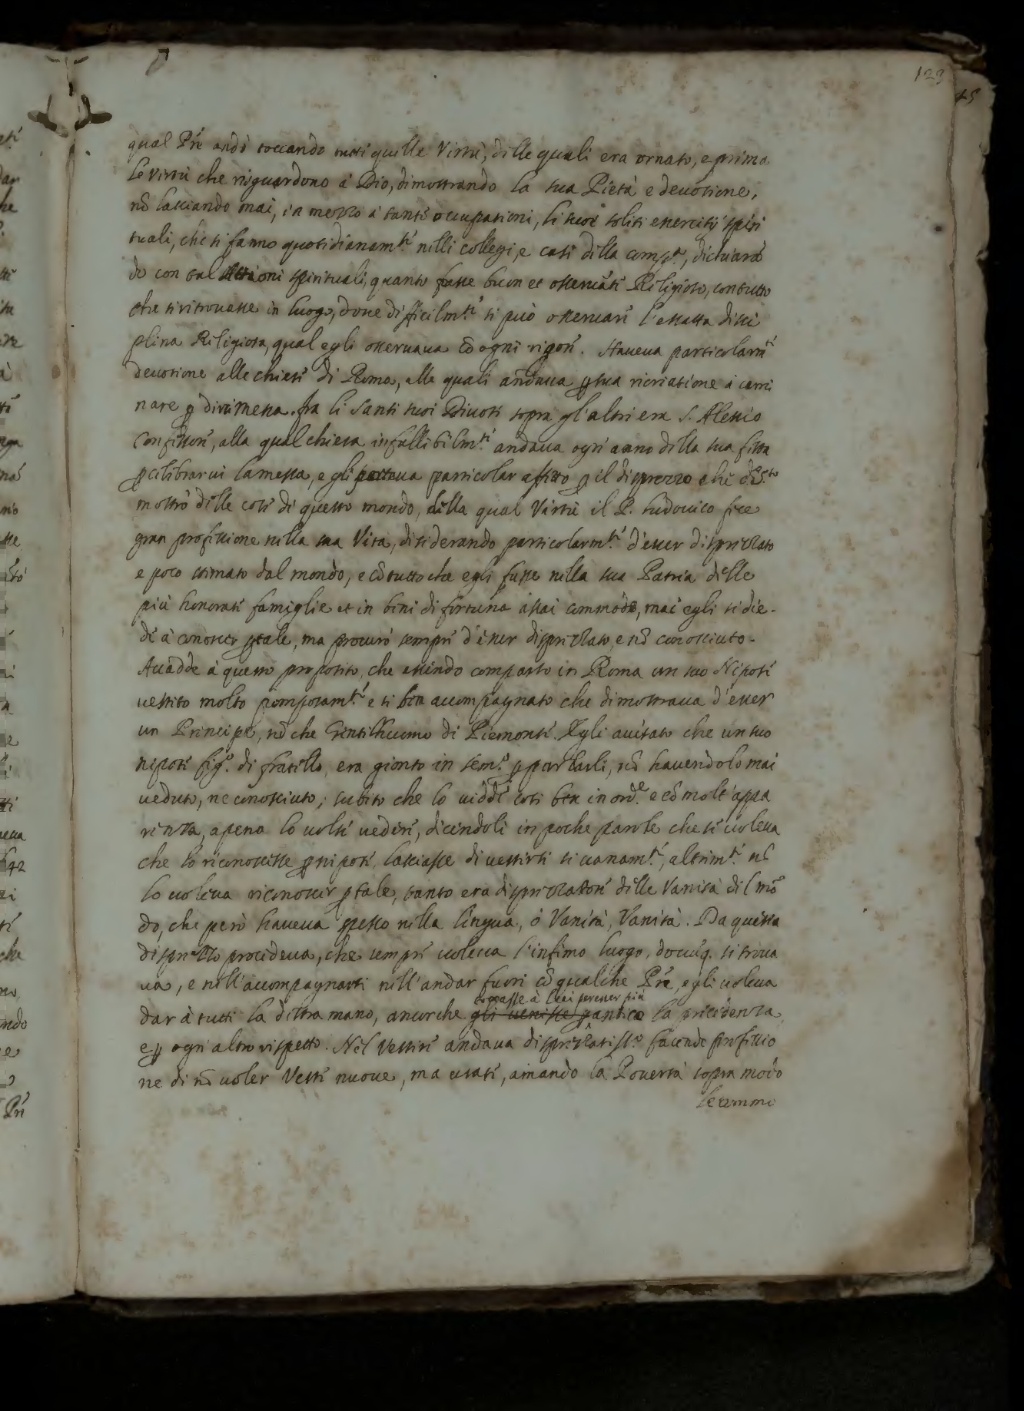 129
45
qual P̃re andò toccando tutte quelle Virtù, delle quali era ornato, e prima
le virtù che riguardono à Dio, dimostrando la sua Pietà e devotione,
nõ lasciando mai, in mezzo à tante occupationi, li suoi soliti esercitij spiri
tuali, che si fanno quotidianam.te nelli collegi, e case della comp.a, dichiarã
do con tal attioni spirituali, quanto fosse buon et osservãte Religioso, contutto
che si ritrovasse in luogo, dove difficilm.te si può osservare l'essatta disci
plina Religiosa, qual egli osservava cõ ogni rigore. Haveva particolarm.te
devotione alle chiese di Roma, alle quali andava ꝑ sua ricreatione à cami
nare ꝑ di Fra li Santi suoi Divoti sopra gl'altri era S. Alessio
Confessore, alla qual chiesa infallibilm.te andava ogni anno della sua festa
ꝑ celebrarvi la messa, e gli portava particolar affetto ꝑ il disprezzo che
mostrò delle cose di questo mondo, della qual Virtù il P. Ludovico fece
gran professione nella sua Vita, desiderando particolarm.te d'esser disprezzato
e poco stimato dal mondo, e cõtutto che egli fusse nella sua Patria delle
più honorate famiglie et in beni di fortuna assai commode, mai egli si die-
de à conoscer ꝑ tale, ma procurò sempre d'esser disprezzato, e nõ conosciuto.
Accadde à questo proposito, che essendo comparso in Roma un suo Nipote
vestito molto pomposam.te e sì ben accompagnato che dimostrava d'esser
un Principe, nõ che Gentilhuomo di Piemonte. Egli avisato che un suo
nepote fig.o di fratello, era gionto in sem.o ꝑ parlarli, nõ havendolo mai
veduto, ne conosciuto; subito che lo vidde così ben in ord.e e cõ molt'appa
renza, apena lo volse vedere, dicendoli in poche parole che se voleva
che lo riconoscesse ꝑ nepote, lasciasse di vestirsi sì vanam.te, altrim.te nõ
lo voleva riconoscer ꝑ tale, tanto era disprezzatore delle Vanità del mõ
do, che però haveva spesso nella lingua, ò Vanità, Vanità. Da questa
disprezzo procedeva, che sempre voleva l'infimo luogo, dovũq. si trova
va, e nell'accompagnarsi nell'andar fuori cõ qualche P̃re, egli voleva
toccasse à lui ꝑ esser più
dar à tutti la destra mano, ancorche gli venisse ꝑ antico la precedenza,
e ꝑ ogni altro rispetto. Nel Vestire andava disprezzatiss.o facendo professio
ne di nõ voler Vesti nuove, ma usate, amando la Povertà sopra modo